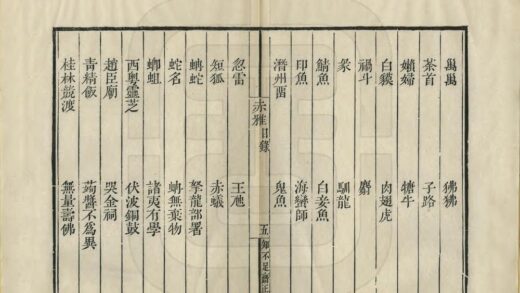 禺禺　狒狒
茶首　子路
嬾婦　牛
白獏　肉翅虎
禍斗　麝
象　馴龍
鯖魚　白妾魚
印魚　海蠻師
潛　鬼魚
赤雅目錄　五　知不足齋正
忽雷　王虺
短狐　赤蟻
蚺蛇　拏龍部署
蛇名　蚺無棄物
螂蛆　諸夷有學
西粵靈芝　伏波銅鼓
趙臣廟　哭金祠
青精飯　蒟醬不為異
桂林競渡　無量壽佛